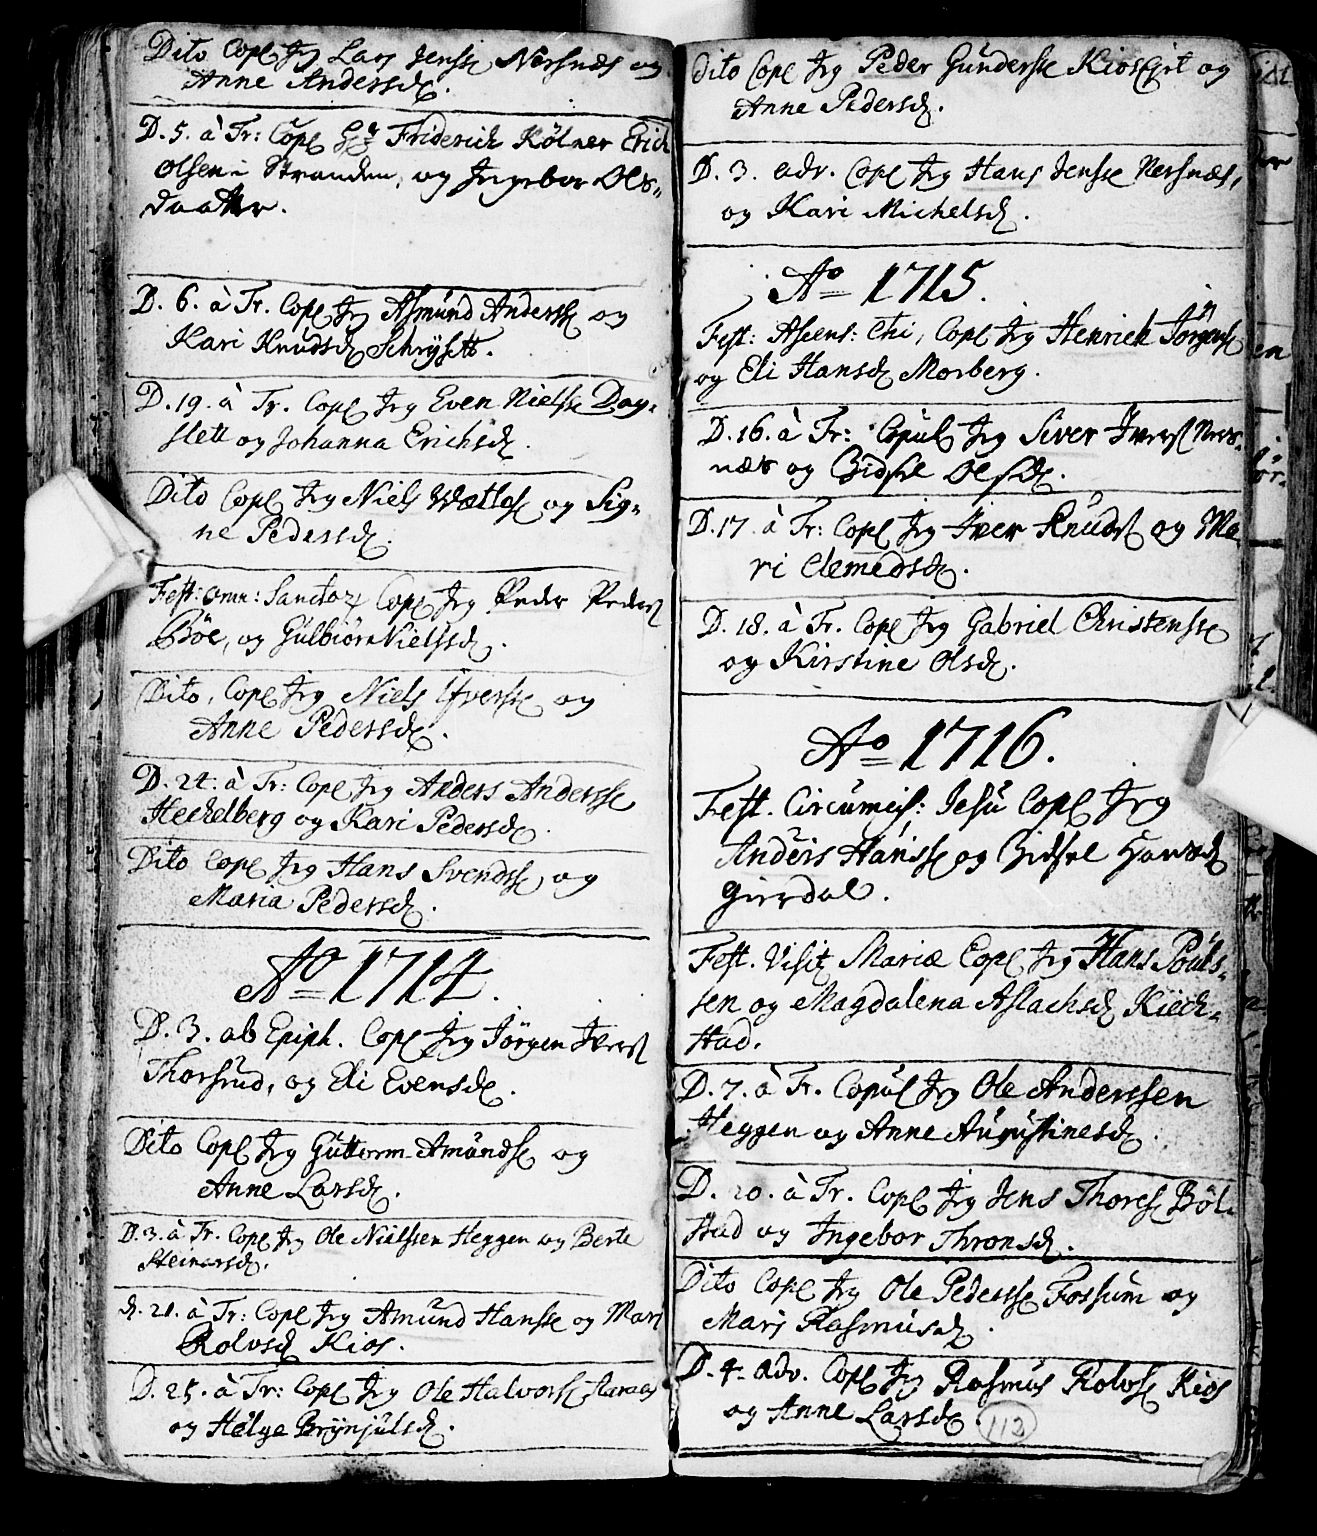 Dito Copl Jeg Lars Jenss Nersnæs og
Anne Andersd.
D. 5. à Tr: Copl Friderich Kølner Erich
Olsen i Stranden, og Ingebor Ols-
daatter.
D. 6. à Tr. Copl Jeg Asmund Anderss og
Kari Knudsd
D. 19. à Tr. Copl Jeg Even Nielss Dag-
slett og Johanna Erichsd.
Dito Copl Jeg Niels og Sig-
ne Pedersd.
Fest: omn: Sanctor Copl Jeg Peder Peders
Böe, og Gulbiör Nielsd.
Dito, Copl Jeg Niels Iverss og
Anne Pedersd.
D. 24. à Tr: Copl Jeg Anders Anderss
Heckelberg og Kari Pedersd.
Dito Copl Jeg Hans Svendss, og
Maria Pedersd.
Ao 1714.
D. 3. ab Epiph. Copl Jeg Jörgen Ivers
Thorsrud, og Eli Evensd.
Dito Copl Jeg Guttorm Amunds og
Anne Larsd.
D. 3. à Tr. Copl Jeg Ole Nielssen Heggen og Berte
Steinarsd.
d. 21. à Tr: Copl Jeg Amund Hanss og Mari
Rolvsd Kios.
D. 25. à Tr: Copl Jeg Ole Halvors
og Helge Brynjulsd.
Dito Copl Jeg Peder Gunderss og
Anne Pedersd.
D. 3. adv. Copl Jeg Hans Jenss Nersnæs,
og Kari Michelsd.
Ao 1715.
Fest: Ascens: Chi, Copl Jeg Henrich Jörgens
og Eli Hansd Morberg.
D. 16. à Tr: Copul Jeg Siver Ivers Ners-
næs og Gidsel Olsd.
D. 17. à Tr: Copl Jeg Iver Knuds og Ma-
ri Clemedsd.
D. 18. à Tr. Copl Jeg Gabriel Christenss
og Kirstine Olsd.
Ao 1716.
Fest. Circumcis: Jesu Copl Jeg
Anders Hanss og Gidsel Hansd
Gierdal.
Fest. Visit Mariæ Copl Jeg Hans Pouls-
sen og Magdalena Aslachsd Kiech-
stad.
D. 7. à Tr. Copul Jeg Ole Anderssen
Heggen og Anne Augustinesd.
D. 20. à Tr. Copl Jeg Jens Thores Böl-
stad og Ingebor Thronsd.
Dito Copl Jeg Ole Pederss Fossum og
Mari Rasmusd.
D. 4. adv. Copl Jeg Rasmus Rolvs Kios
og Anne Larsd.
112